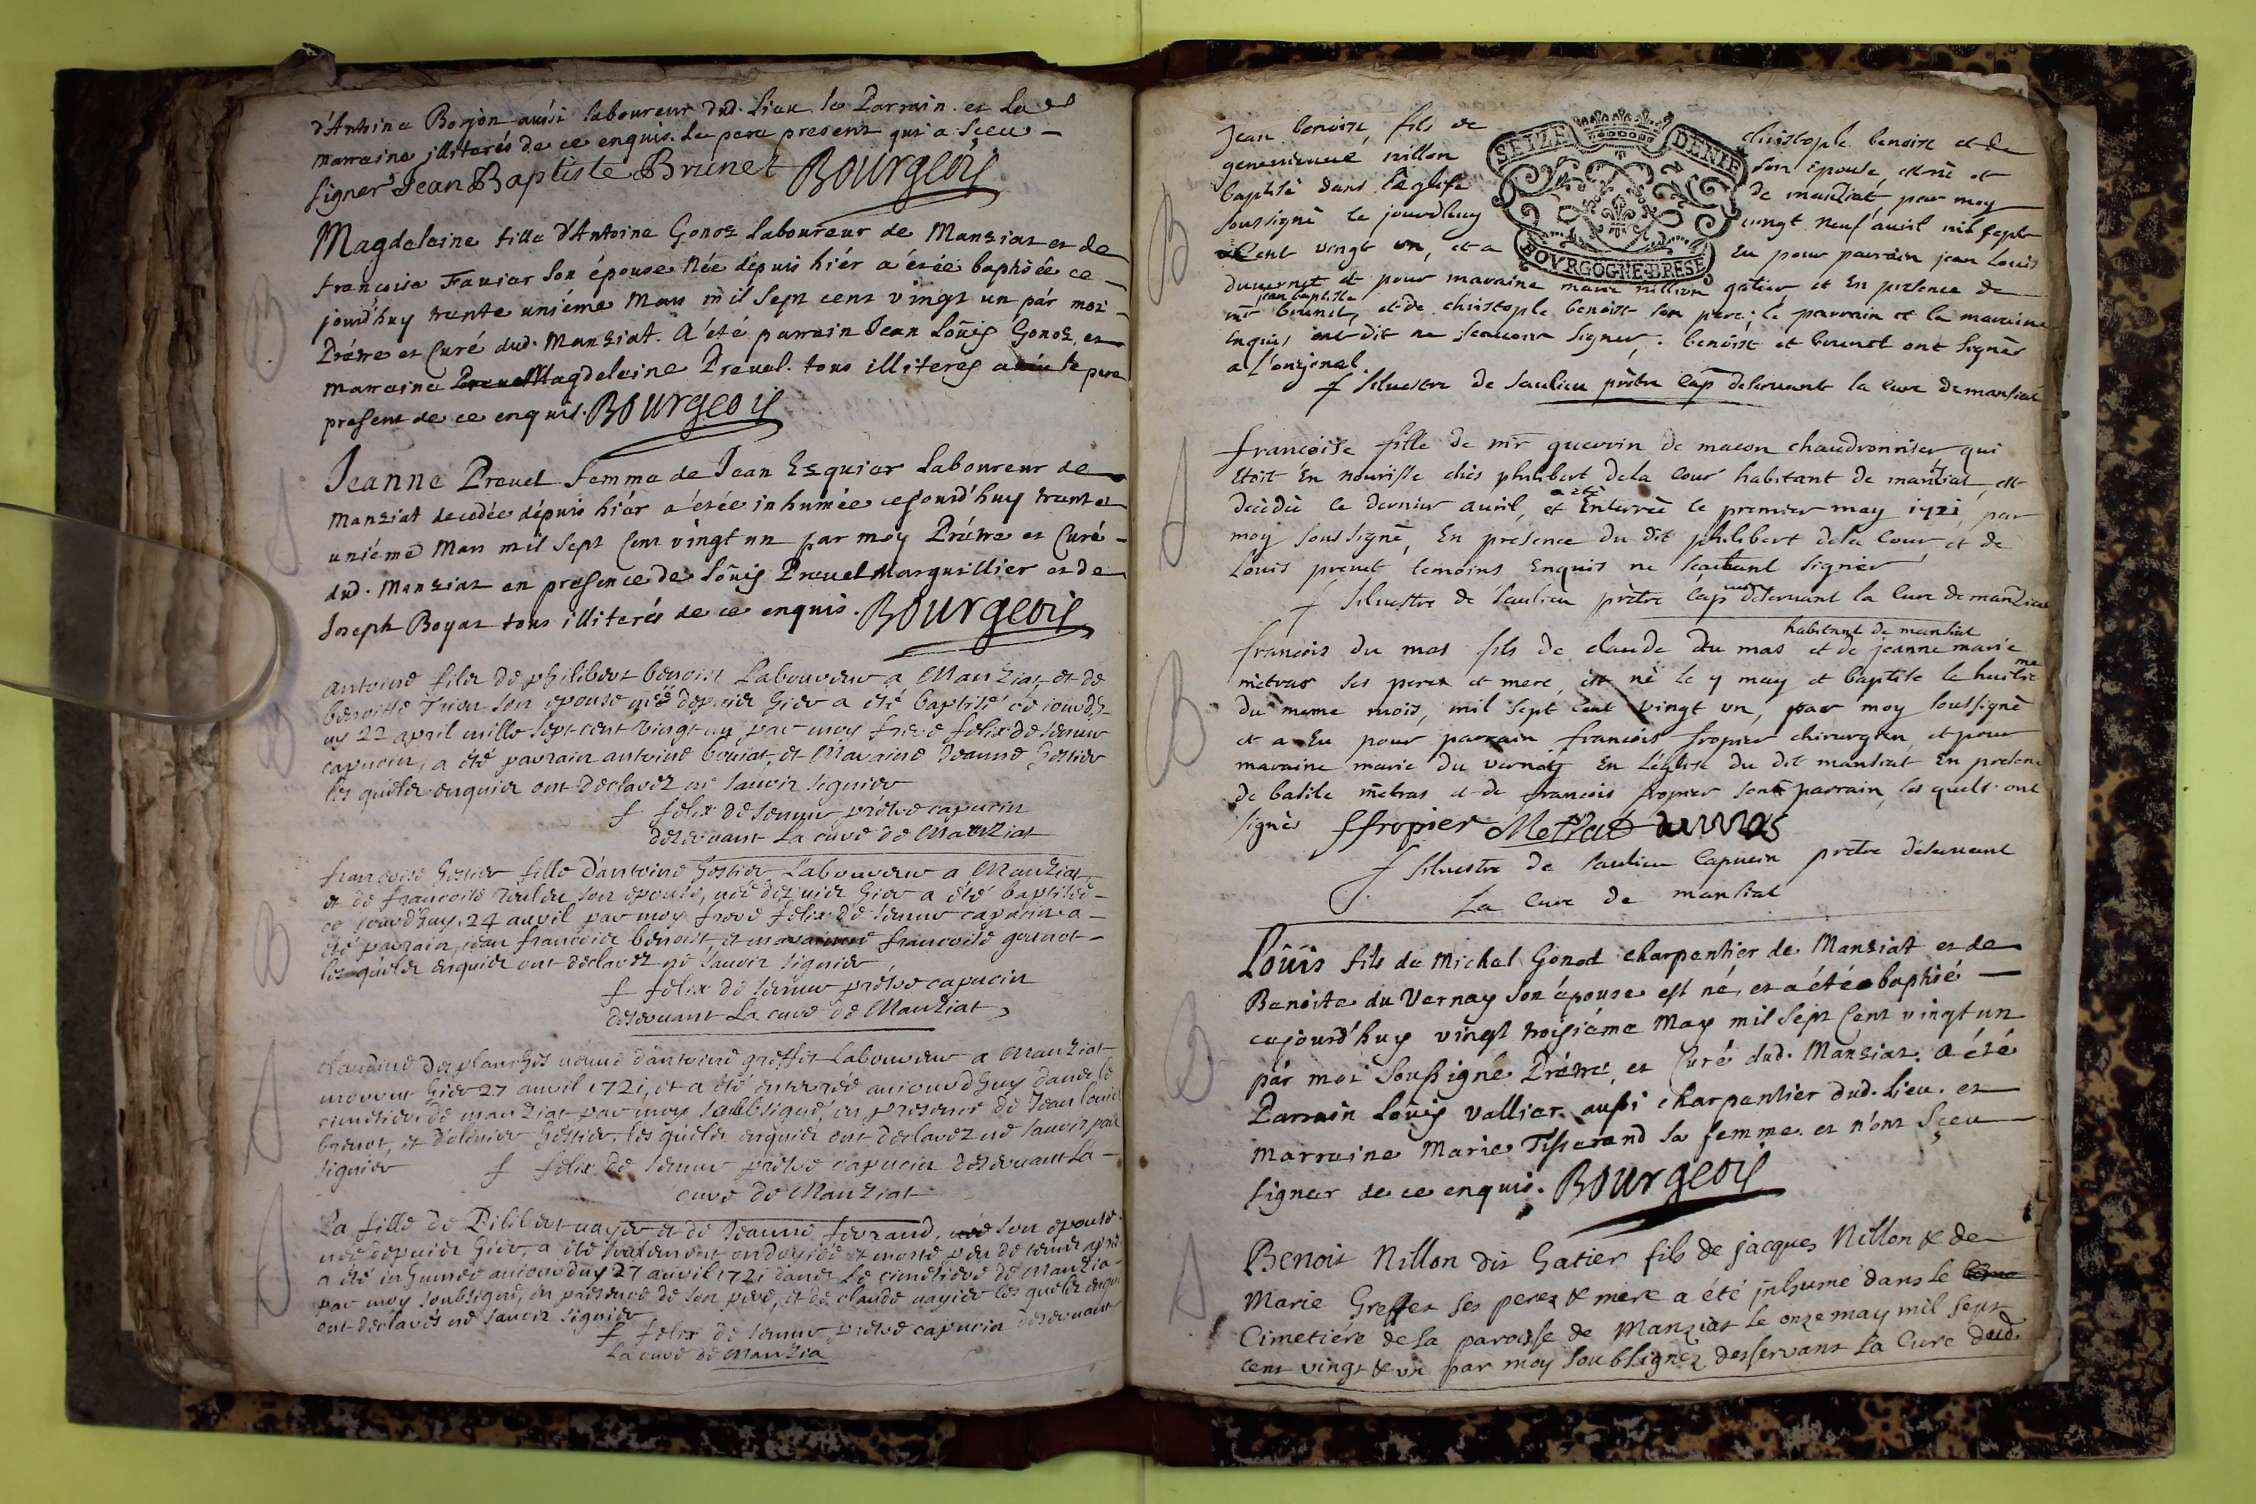 d'Antoine Borjon aussi laboureur dud. Lieu. le Parrain et La
marraine illiterés de ce enquis. Le pere present qui a sceu
signer Jean Baptiste Brunet Bourgeois
B
Magdelaine fille d'Antoine Gonoz laboureur de Manziat et de
francoise Favier son épouse Née dépuis hiér a étée baptisée ce
jourd'huy trente uniéme Mars mil sept cent vingt un pár moi
Prétre et Curé dud. Manziat. A été parrain Jean Loüis Gonoz, et
marraine Magdelaine Preuel. tous illiteres le pere
present de ce enquis. Bourgeois
Jeanne Preuel femme de Jean Esquier Laboureur de
Manziat decedée dépuis hiér a étée inhumée cejourd'huy trente
uniéme Mars mil sept Cent vingt un par moy Prétre et Curé
dud. Manziat en presence de Loüis Preuel Marguillier et de
Joseph Boyat tous illiterés de ce enquis. Bourgeois
B
antoine fils de philibert benoist Laboureur a Manziat et de
benoitte son epouse né depuis hier a été baptisé ce iourd'h
uy 22 april mille sept cent vingt un par moy frere felix de semur
capucin, a été parrain antoine boiat, et Maraine Jeanne Gestier
les quels enquis ont declarez ne sauoir signier
f felix de semur prétre capucin
deservant La cure de Manziat
B
francoise Gestier fille d'antoine Gestier Laboureur a Manziat
et de francoise son epouse, née depuis hier a été baptisée
ce iourd'huy 24 auril par moy frere felix de semur capucin a
été parrain, iean francois benoist, et maraine francoise gonot
les quels enquis ont declarez ne sauoir signier
f felix de semur prétre capucin
deservant La cure de Manziat
claudine desplanches veuue d'antoine greffet Laboureur a Manziat
mourut hier 27 auril 1721, et a été enterrée auiourd'huy dans le
cimetiere de manziat par moy soubsigné, en presence de Jean louis
brenot, et d'oliuier Gestier, les quels enquis ont declarez ne sauoir pas
signier f felix de semur prétre capucin deservant La
cure de Manziat
La fille de Pilibert uayer et de Jeanne ferrand, son epouse
née depuis hier, a été seulement ondoyée et morte peu de tems aprés
a été inhumée auiourd'huy 27 auril 1721 dans Le cimetiere de Manzia
par moy soubsigné, en presence de son pere, et de claude uayier les quels enquis
ont declarés ne sauoir signier
f felix de semur prétre capucin deservant
La cure de Manzia
SEIZE DENIE
BOVRGOGNE·BRESE
B
Jean benoist, fils de christophle benoist et de
geneuieue nillon son épouse, est né et
baptisé dans l'église de manziat par moy
soussigné le jourdhuy vingt neuf auril mil sept
Cent vingt un, et a Eu pour parrain jean Louis
duuernet et pour maraine marie nillion gatier et En presence de
jean baptiste
mr brunet, et de christophle benoist son pere; le parrain et la maraine
Enquis, ont dit ne scauoir signer; benoist et brunet ont signés
a l'original.
f siluestre de saulieu prètre Cap deseruant la cure de mansiat
francoise fille de mr guerrin de macon chaudronnier qui
Etoit En nourisse chés philibert dela cour habitant de manziat, est
decedé le dernier auril, et a eté Enterreé le premier may 1721, par
moy soussigné, En presence du dit philibert dela Cour, et de
Louis preuet temoins Enquis ne scachant signer
f siluestre de saulieu prètre Capucin deseruant la Cure de manziat
B
habitant de mansiat
francois du mas fils de claude du mas et de jeanne marie
metras ses pere et mere, est né le 7 may et baptisé le huitieme
du meme mois, mil sept Cent vingt un, par moy soussigné
et a Eu pour parrain francois fropier chirurgien, et pour
maraine marie du vernay En l'église du dit mansiat En presence
de basile métras et de francois fropier son parrain, les quels ont
signés ffropier Metras dumas
f siluestre de saulieu Capucin prètre deseruant
La Cure de mansiat
B
Loüis fils de Michel Gonod charpentier de Manziat et de
Benoite du Vernay son épouse est né, et a été baptisé
aujourd'huy vingt troisiéme May mil sept Cent vingt un
pár moi soussigné Prétre, et Curé dud. Manziat. A été
Parrain Loüis Vallier aussi charpentier dud. Lieu. et
Marraine Marie Tisserand sa femme. et n'ont sçeu
signer de ce enquis. Bourgeois
Benoit Nillon dit Gatier fils de jacques Nillon & de
Marie Greffet ses peres & mere a été inhumé dans le
Cimetiére de la paroisse de Manziat le onze may mil sept
cent vingt & un par moy soubsignez desservant La Cure dud.